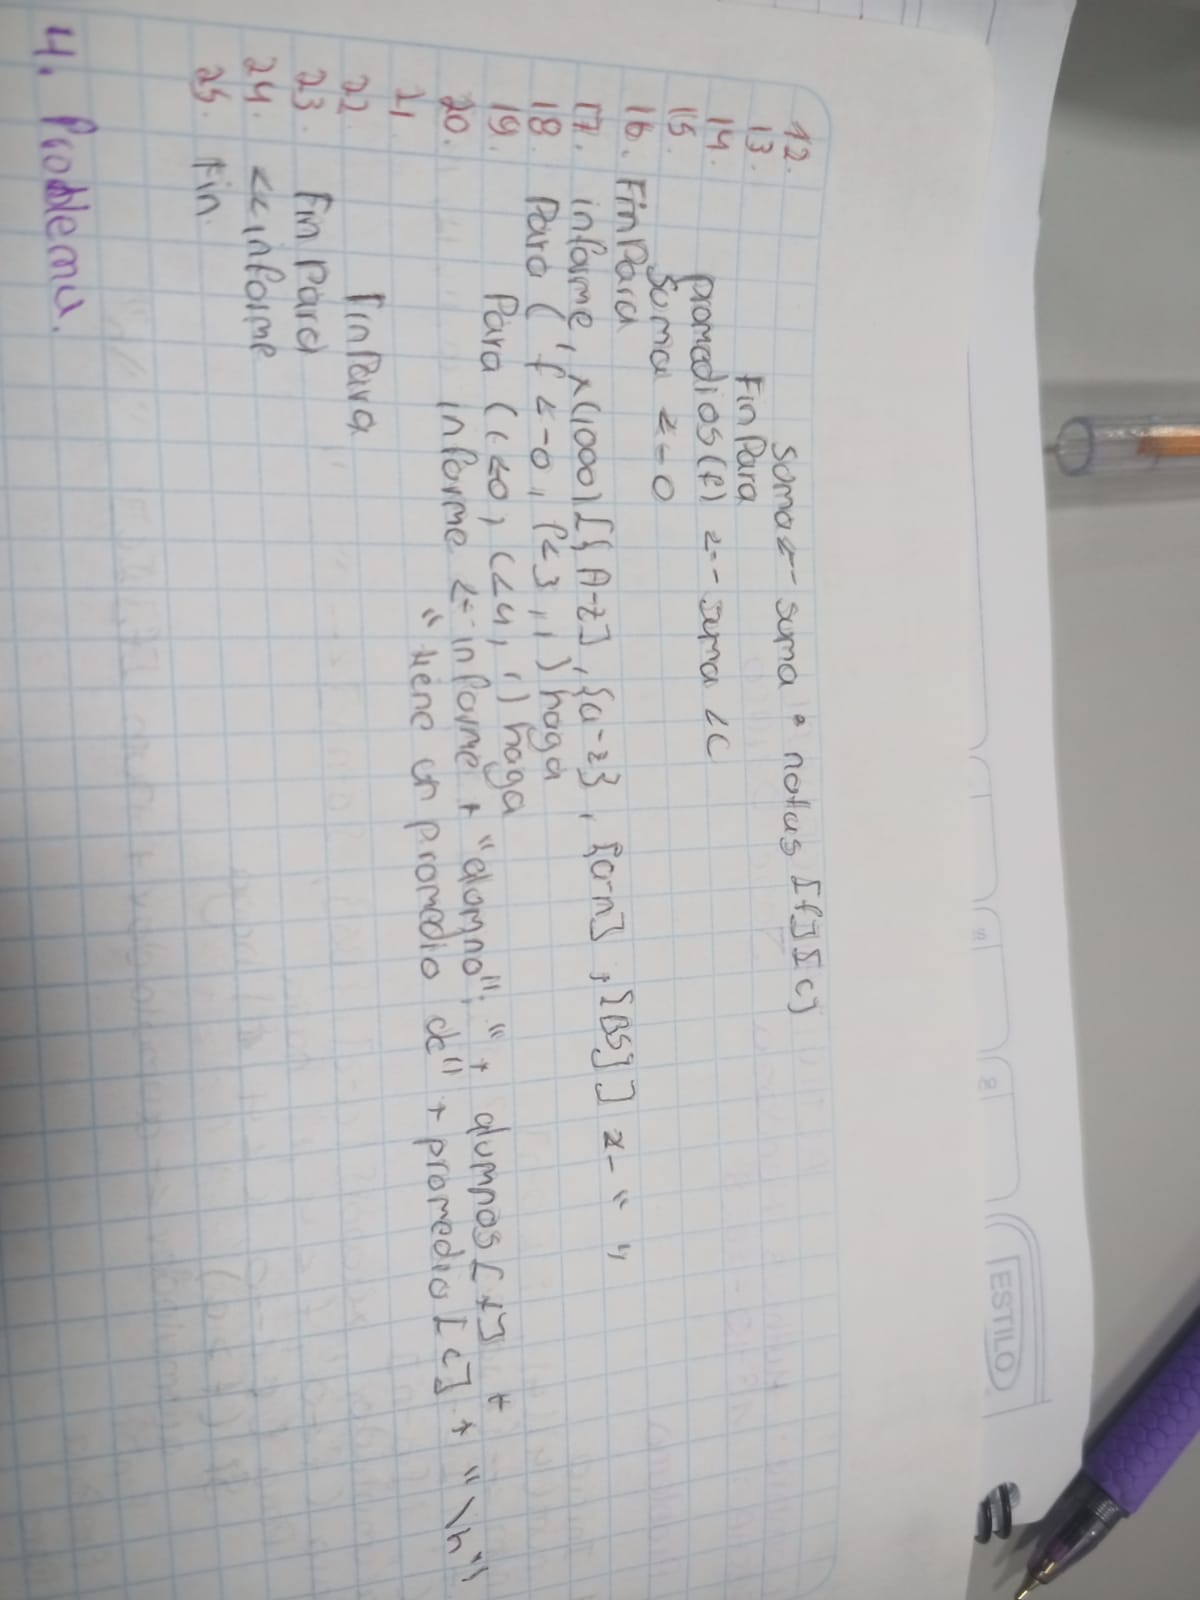 12. Suma <- suma + notas [f][c]
13. Fin Para
14. promedios(f) <- suma /C
15. Suma <- 0
16. Fin Para
17. informe, x(1000) [{A-Z], {a-z}, {0-n], {BS}] <- " "
18. Para ( f <- 0, f<3, 1) haga
19. Para (c<0, c<4, 1) haga
20. informe <- informe + "alumno": " + alumnos [f] +
21. "tiene un promedio de" + promedio [c] + "\n"
22. Fin Para
23. Fin Para
24. << informe
25. Fin.
4. Problema.
ESTILO